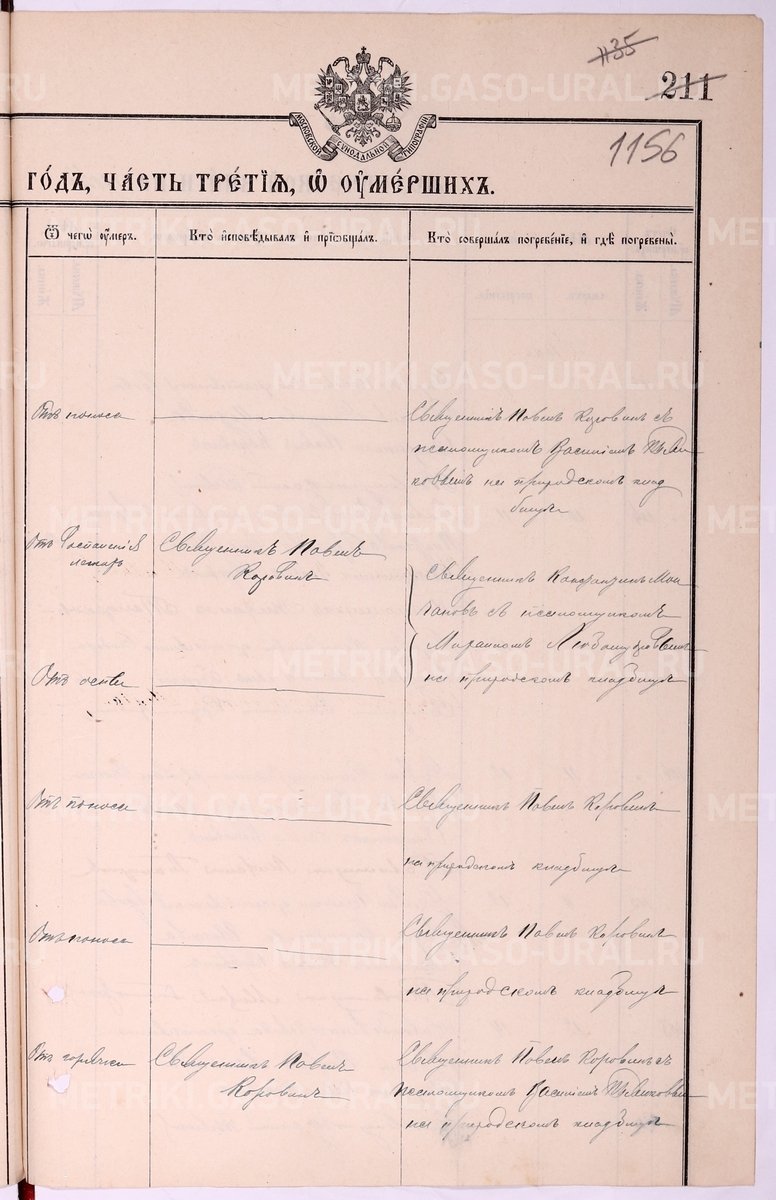 1135
211
1156
МОСКОВСКОЙ СѴНОДАЛЬНОЙ ТИПОГРАФІИ
ГО́ДЪ, ЧА́СТЬ ТРЕ́ТІѦ, Ѡ҆ ОУ҆МЕ́РШИХЪ.
Ѿ чегѡ̀ оу҆́меръ.
Кто̀ и҆сповѣ́дывалъ и҆ прїѡбща́лъ.
Кто̀ соверша́лъ погребе́нїе, и҆ гдѣ̀ погребены̀.
Отъ поноса
Священникъ Павелъ Коровинъ съ
псаломщикомъ Василіемъ
на приходскомъ клад
бищѣ
Отъ
Священникъ Павелъ
Коровинъ
Священникъ Константинъ
съ псаломщикомъ
на приходскомъ кладбищѣ
Отъ оспы
Отъ поноса
Священникъ Павелъ Коровинъ
на приходскомъ кладбищѣ
Отъ поноса
Священникъ Павелъ Коровинъ
на приходскомъ кладбищѣ
Отъ горячки
Священникъ Павелъ
Коровинъ
Священникъ Павелъ Коровинъ съ
псаломщикомъ Василіемъ
на приходскомъ кладбищѣ
METRIKI.GASO-URAL.RU